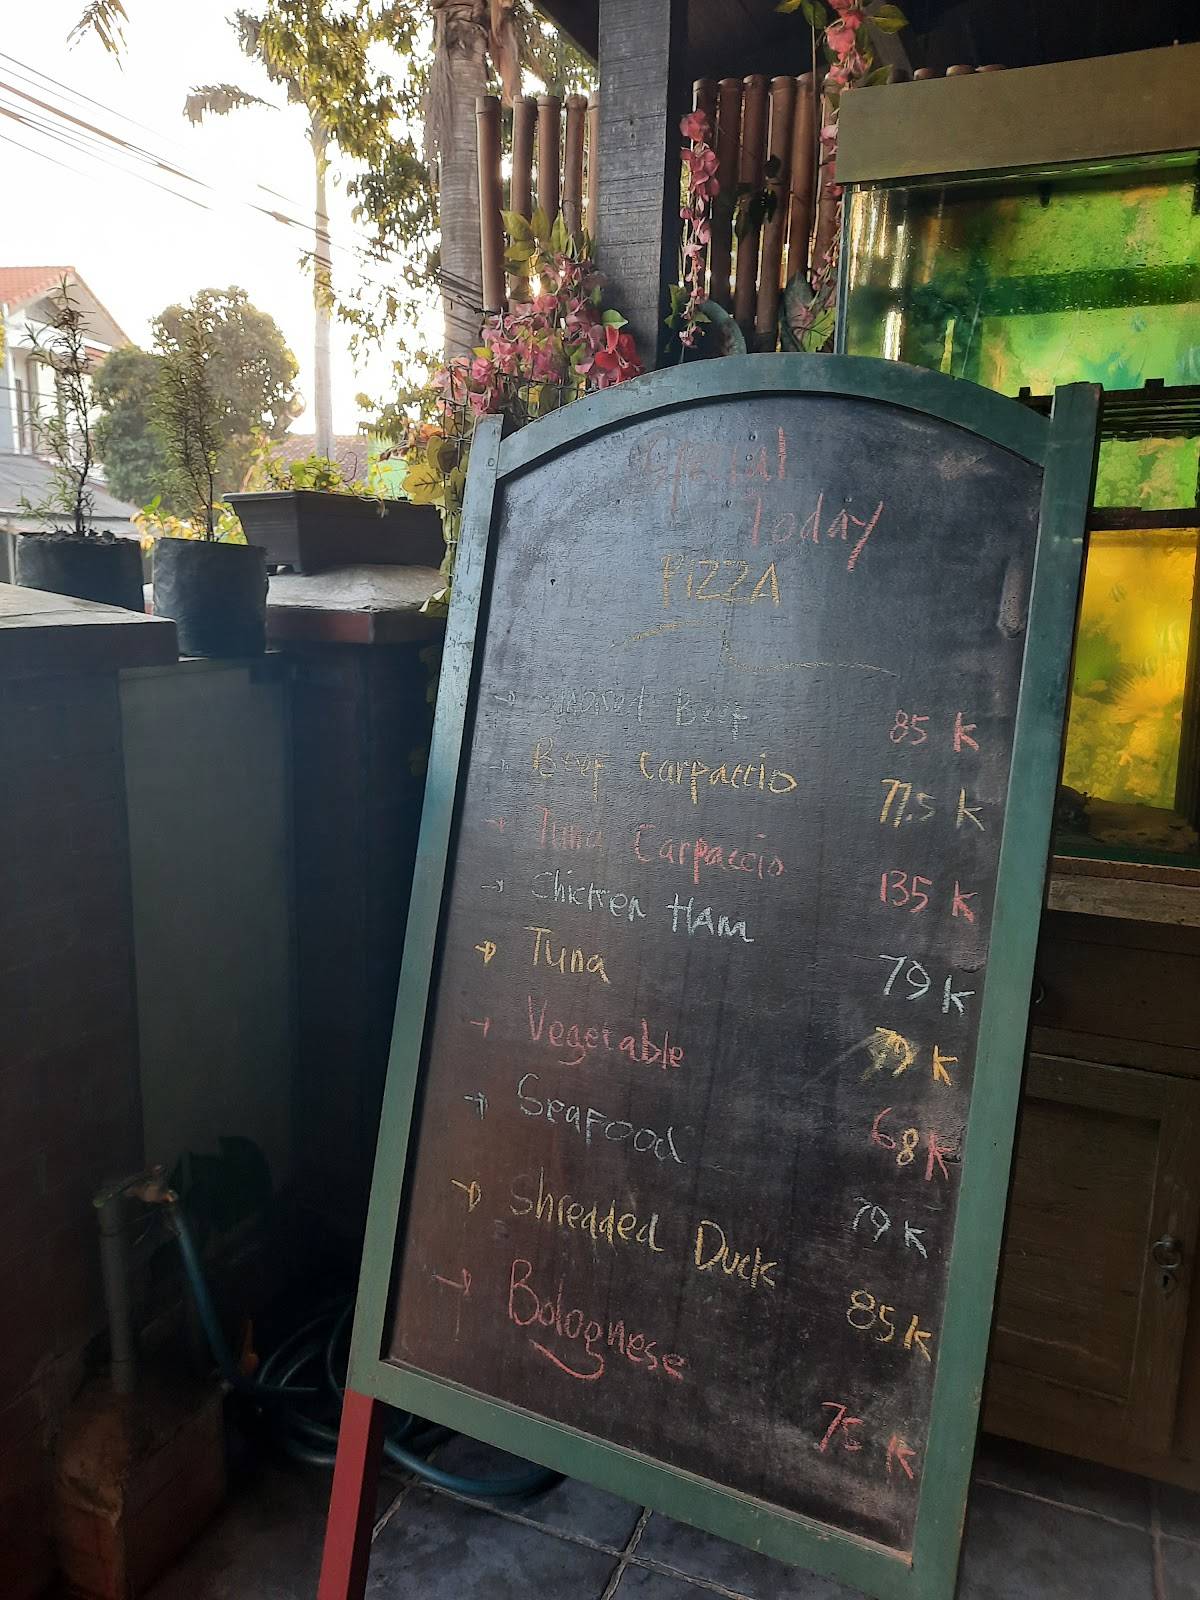 Special
Today
PIZZA
→ Beef 85 K
→ Beef Carpaccio 77.5 K
→ Tuna Carpaccio 135 K
→ Chicken Ham 79 K
→ Tuna 79 K
→ Vegetable 68 K
→ Seafood 79 K
→ Shredded Duck 85 K
→ Bolognese 75 K